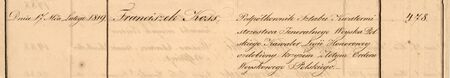 Dnia 17. Mca Lutego 1819
Franciszek Koss.
Podpółkownik Sztabu Kwatermi-
strzostwa Jeneralnego Woyska Pol-
skiego Kawaler Legii Honorowey
ozdobiony krzyżem Złotym Orderu
Woyskowego Polskiego.
478.